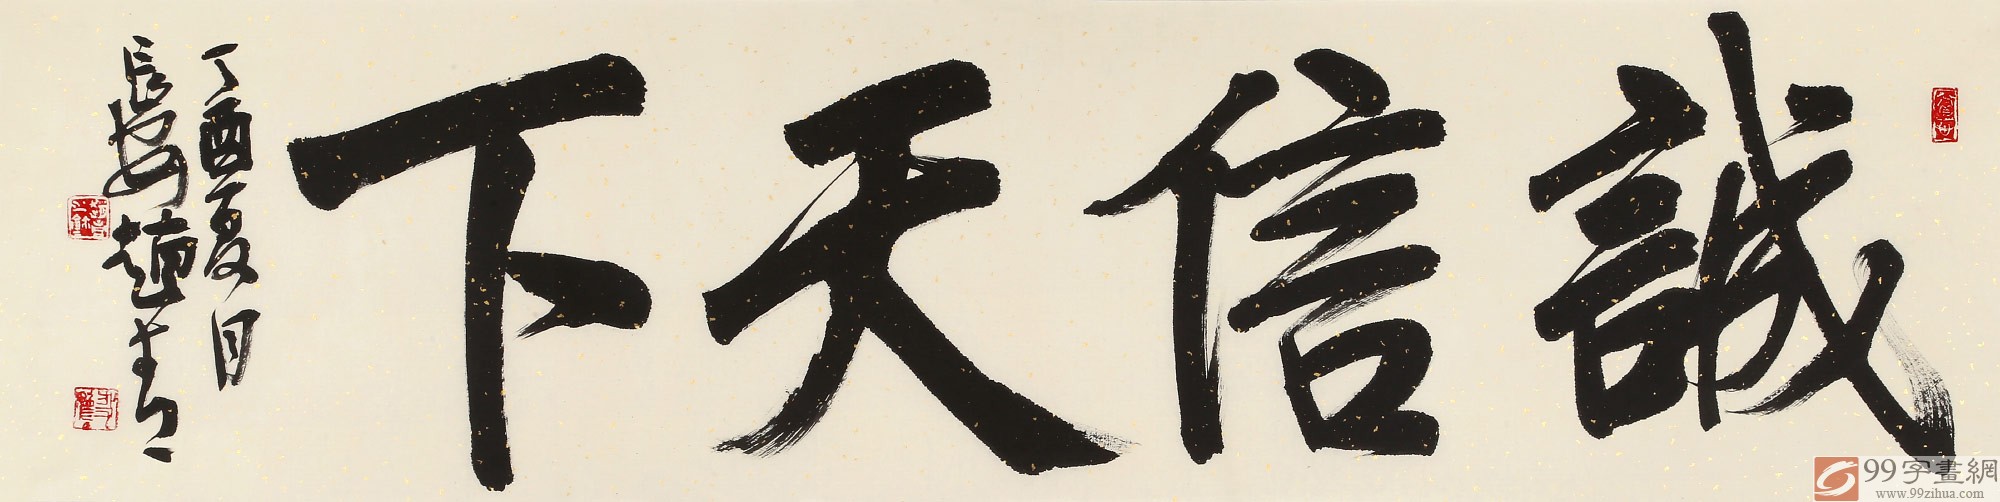 誠信天下
丁酉夏月
長安趙
99字畫網
www.99zihua.com